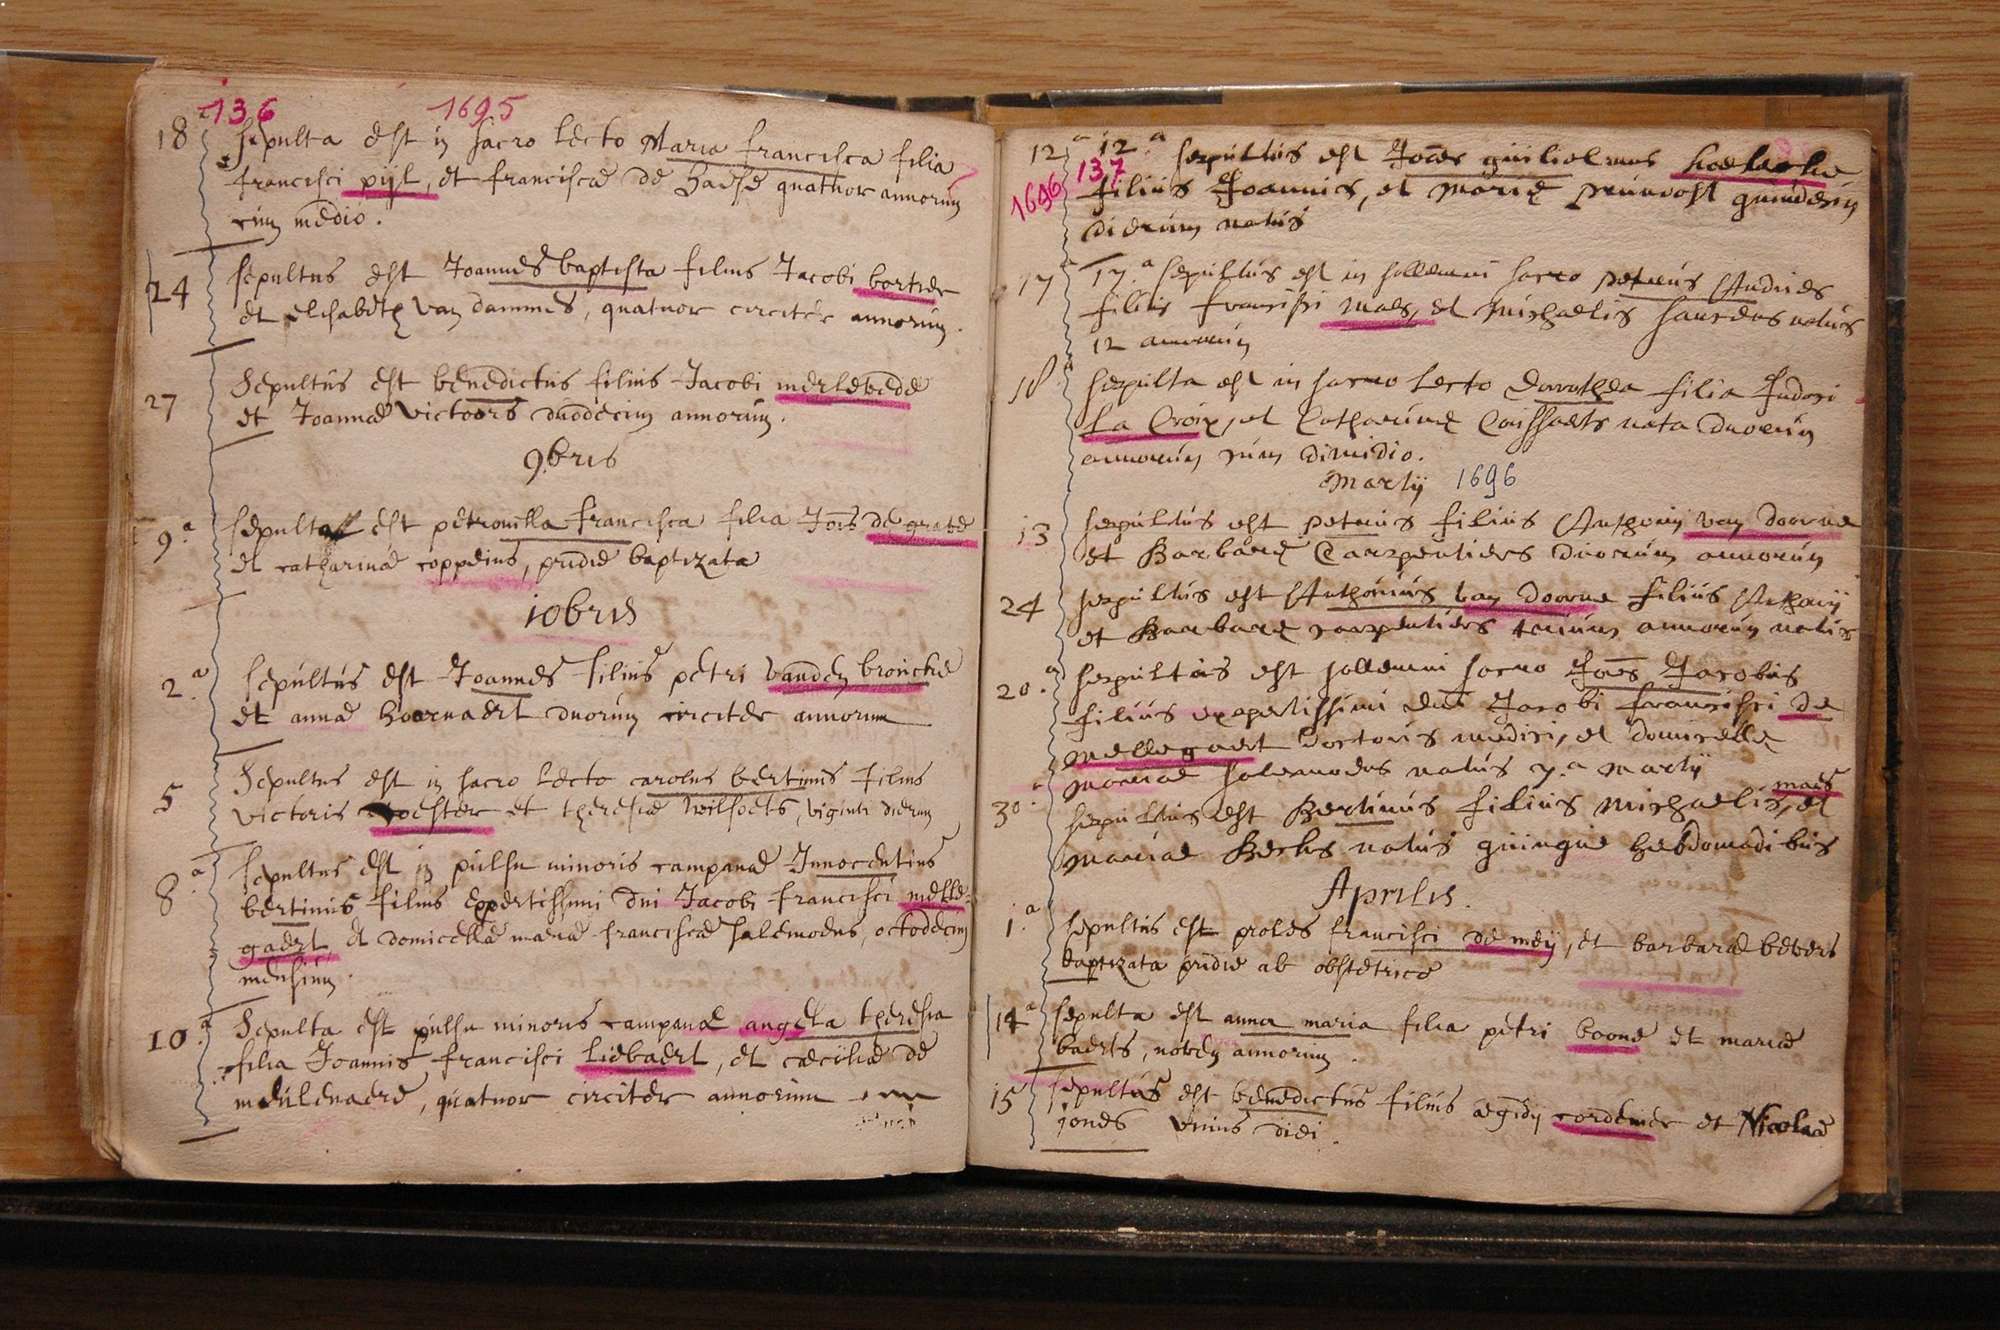 136 1695
18 a Sepulta est in sacro lecto Maria francisca filia
francisci pijl, et franciscæ de haese quatuor annorum
cum medio.
24 sepultus est Joannes baptista filius Jacobi bortier
et elisabeth van damme, quatuor circiter annorum.
27 Sepultus est benedictus filius Jacobi merlebede
et Joannæ victoors duodecim annorum.
9bris
9.a sepulta est petronilla francisca filia Jois de grave
et catharinæ coppeins, pridie baptizata
10bris
2.a sepultus est Joannes filius petri vanden broucke
et annæ hoornaert duorum circiter annorum
5 Sepultus est in sacro lecto carolus bertinus filius
victoris et theresiæ, viginti dierum
8.a sepultus est in pulsu minoris campanæ Innocentius
bertinus filius expertissimi dni Jacobi francisci melle-
gaert et domicellæ mariæ franciscæ salemoens, octodecim
mensium.
10.a Sepulta est pulsu minoris campanæ angela theresia
filia Joannis francisci liebaert, et cæciliæ de
meulenaere, quatuor circiter annorum
12 a 12.a sepultus est Joães guilielmus
1696 137 filius Joannis, et Mariæ pruvost quindecim
dierum natus
17 a 17.a sepultus est in sollemni sacro petrus Andries
filius francisci maes, et Michaelis natus
12 annorum
18. a sepulta est in sacro lecto dorothea filia Judoci
La Croix, et Catharinæ nata duorum
annorum cum dimidio.
Martij 1696
13 sepultus est petrus filius Anthonij van doorne
et Barbaræ Carpentiers duorum annorum
24 sepultus est Anthonius van doorne filius Anthonij
et Barbaræ carpentiers trium annorum natus
20.a sepultus est sollemni sacro Joẽs Jacobus
filius expertissimi dni Jacobi francisci de
mellegaert doctoris medici, et domicellæ
mariæ salemoens natus 7.a Martij
30.a sepultus est Bertinus filius Michaelis maes, et
Mariae Becks natus quinque hebdomadibus
Aprilis.
1.a sepultus est proles francisci de meij, et barbaræ bevers
baptizata pridie ab obstetrice
14 a sepulta est anna maria filia petri boone et mariæ
baerts, novem annorum.
15 sepultus est benedictus filius ægidij cordemer et Nicolaæ
jones unius diei.